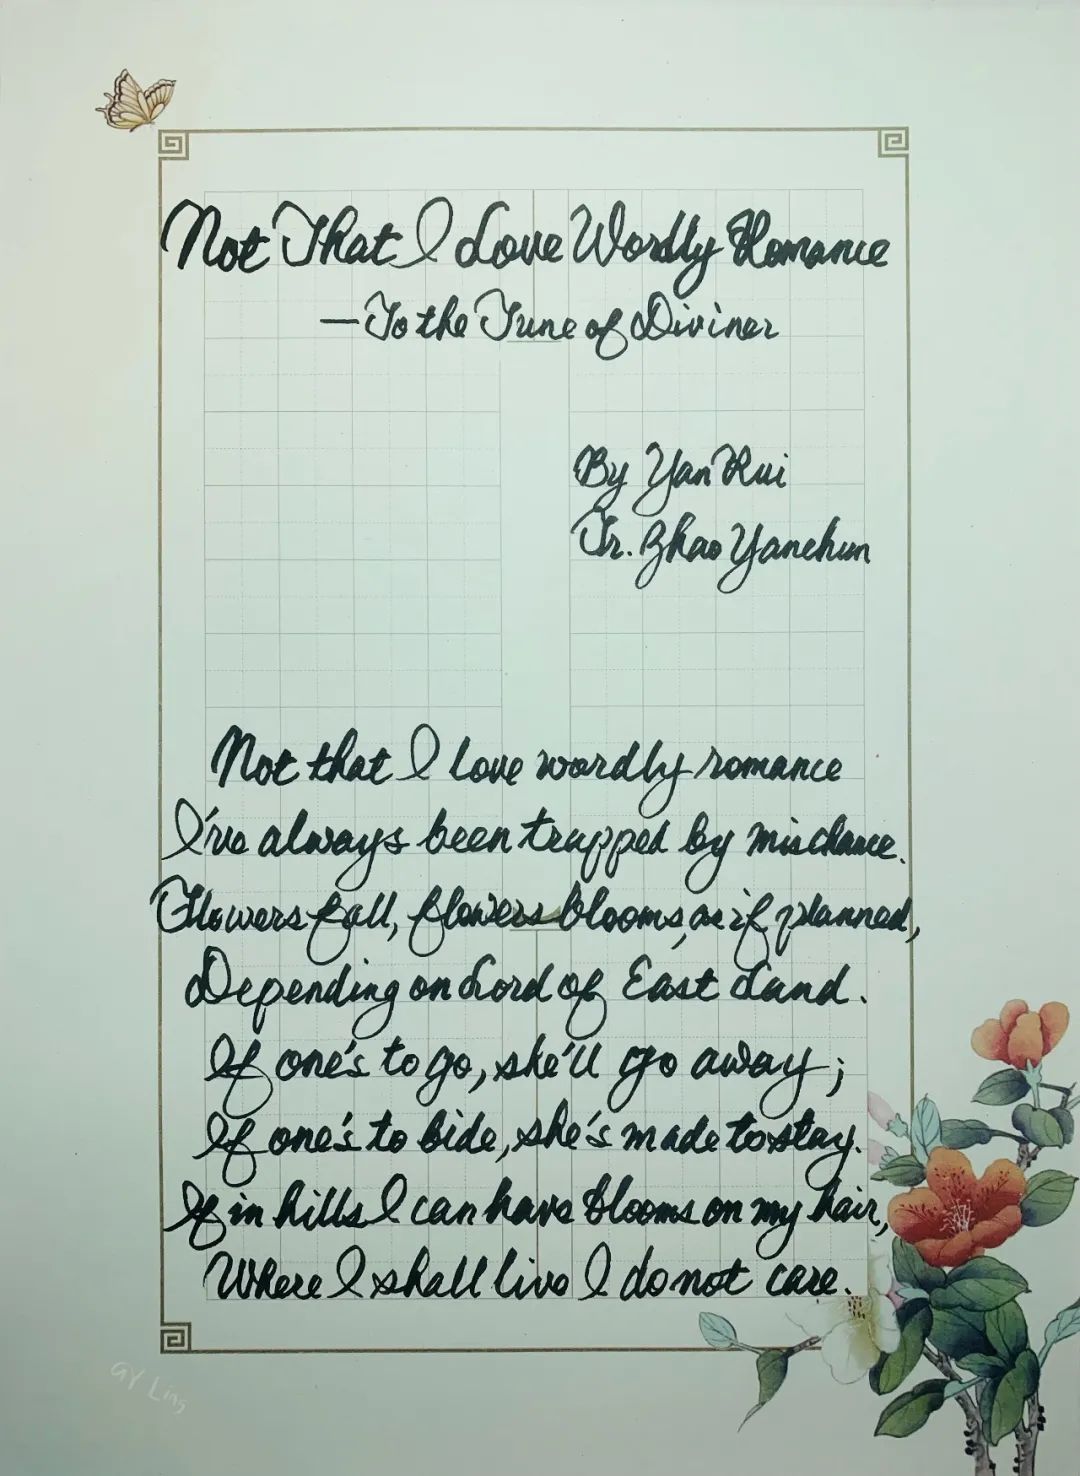 Not That I Love Wordly Romance
—To the Tune of Diviner
By Yan Rui
Tr. Zhao Yanchun
Not that I love wordly romance
I've always been trapped by mischance.
Flowers fall, flowers blooms, as if planned,
Depending on Lord of East Land.
If one's to go, she'll go away;
If one's to bide, she's made to stay.
If in hills I can have blooms on my hair,
Where I shall live I do not care.
GY Ling